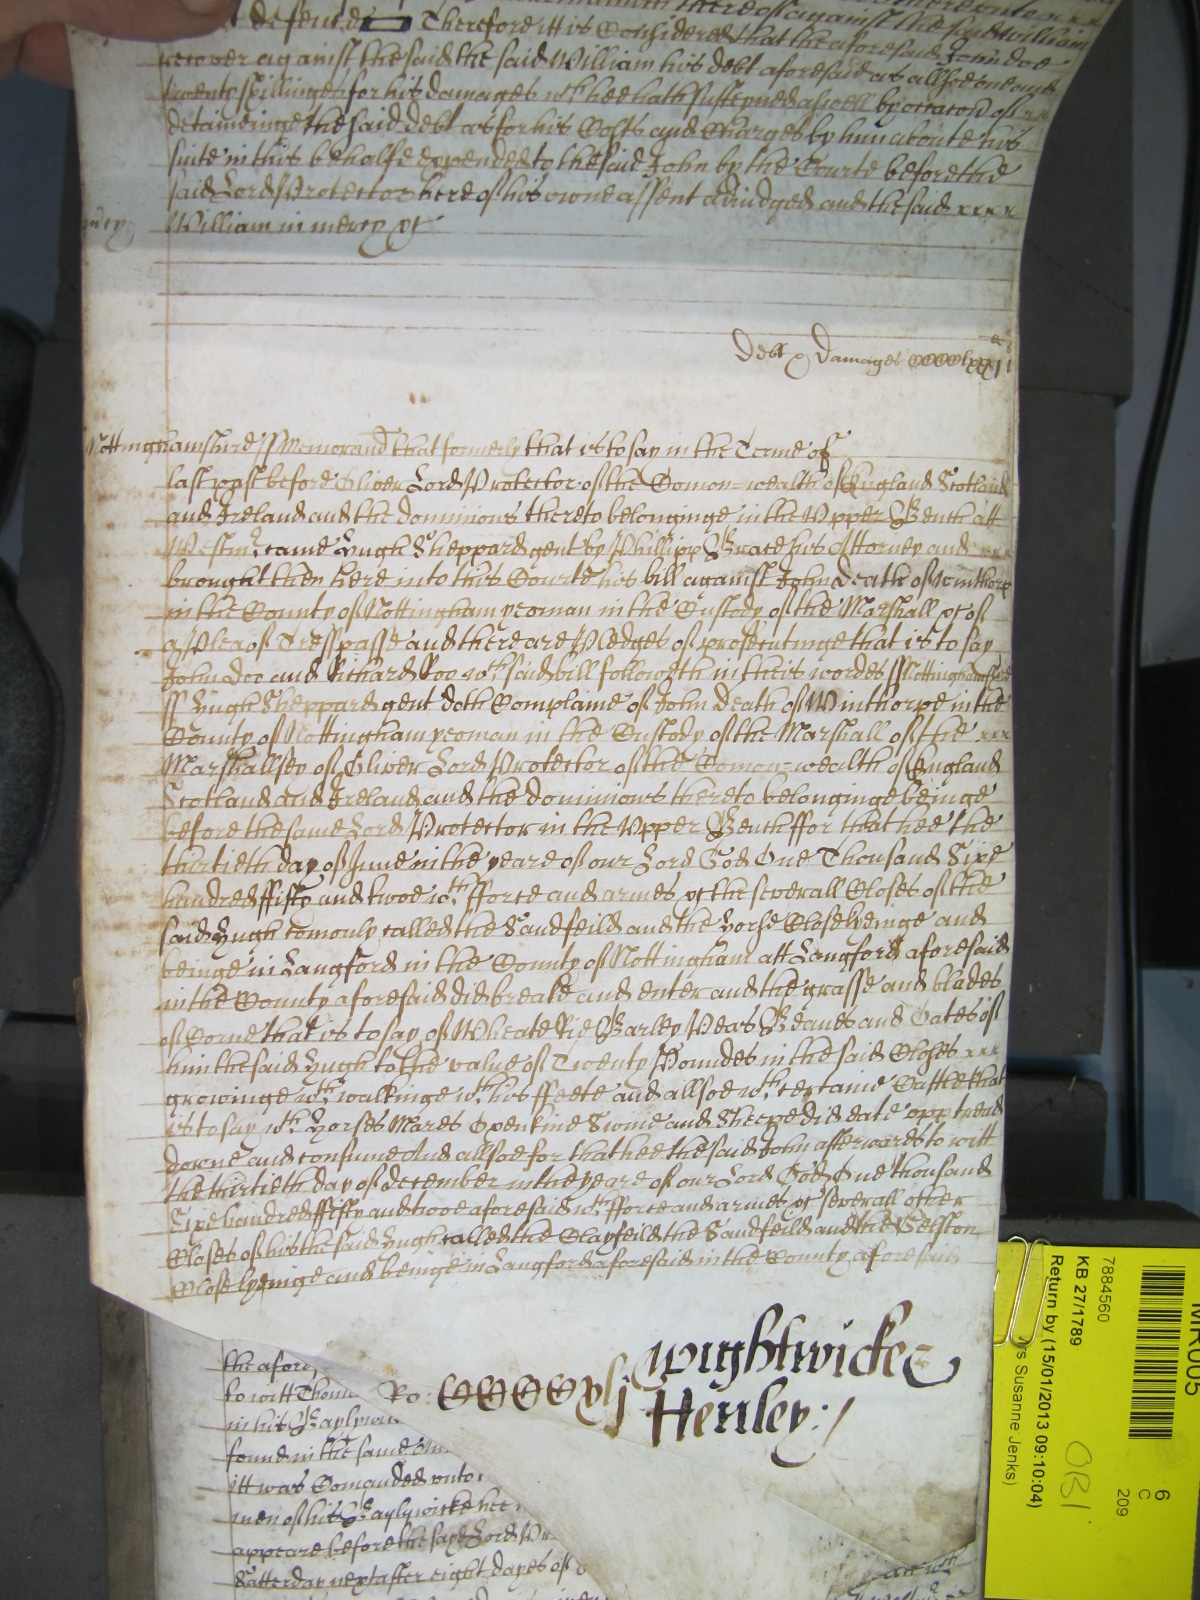 defend Therefore itt is Considered that the aforesaid John doe
recover against the said the said William his debt aforesaid as allsoe one and
twenty shillinges for his damages wch hee hath susteyned aswell by occacon of
detaineinge the said debt as for his Costs and Charges by him about his
suite in this behalfe expended to the said John by the Courte before the
said Lord Protector here of his owne assent adiudged and the said xxxx
mercy William in mercy &c
Debt & Damages
Nottinghamshire ss Memorand that formerly that is to say in the Terme of
last past before Oliver Lord Protector of the Comon=wealth of England Scotland
and Ireland and the dominions thereto belonginge in the Upper Bench att
Westmr came Hugh Sheppard gent by Phillipp Brace his Attorney and xxx
brought then here into this Courte his bill against John Death of Winthorp
in the County of Nottingham yeoman in the Custody of the Marshall &c of
a Plea of Tresspasse and there are Pledges of prosecutinge that is to say
John Doo and Richard Roo wch said bill followeth in theis wordes ss Nottinghamshire
ss Hugh Sheppard gent doth Complaine of John Death of Winthorpe in the
County of Nottingham yeoman in the Custody of the Marshall of the xxx
Marshallsey of Oliver Lord Protector of the Comon=wealth of England
Scotland and Ireland and the dominions thereto belonginge beinge
before the same Lord Protector in the Upper Bench ffor that hee the
thirtieth day of June in the yeare of our Lord God One Thousand Sixe
hundred ffifty and twoe wth fforce and armes &c the severall Closes of the
said Hugh comonly called the Sandfeild and the Horse Close lyeinge and
beinge in Langford in the County of Nottingham att Langford aforesaid
in the County aforesaid did breake and enter and the grasse and blades
of Corne that is to say of Wheate Rie Barley Peas Beanes and Oates of
him the said Hugh to the value of Twenty Poundes in the said Closes xxx
growinge wth walkinge wth his ffeete and allsoe wth certaine Cattle that
is to say wth Horses Mares Oxen kine Swine and Sheepe did eate upp tread
downe and consume And allsoe for that hee the said John afterwards to witt
the thirtieth day of December in the yeare of our Lord God One thousand
Sixe hundred ffifty and twoe aforesaid wth fforce and armes &c severall other
Closes of his the said Hugh called the Clayfeild the Sandfeild and the
Close lyeinge and beinge in Langford aforesaid in the County aforesaid
Wightwicke
Ro:
Henley:/
the afore
to witt Thom
in his Baylywi
found in the same
itt was Comanded unto
men of his Baylywicke hee
appeare before the sayd Lord Pr
Satterday next after eight dayes of
MR005
7884560
KB 27/1789
Return by (15/01/2013 09:10:04)
s Susanne Jenks)
OB1
6
C
209